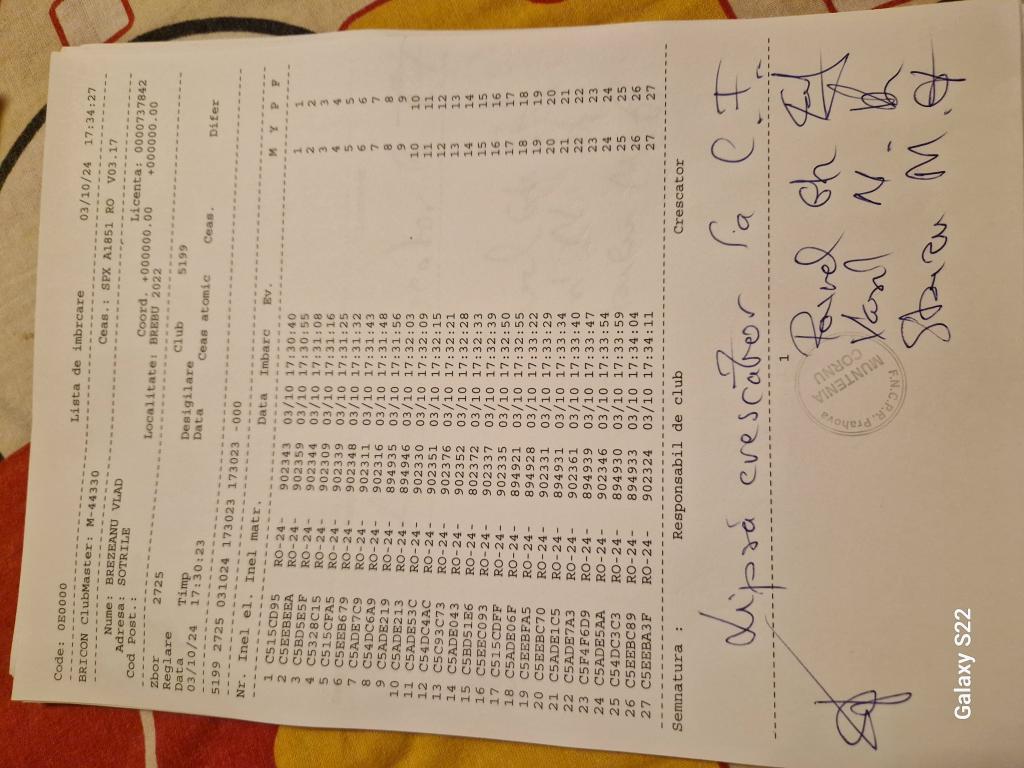 Code: 0E0000
BRICON ClubMaster: M-44330 Lista de imbrcare 03/10/24 17:34:27
Nume: BREZEANU VLAD Ceas.: SPX A1851 RO V03.17
Adresa: SOTRILE
Cod Post.: Licenta: 0000737842
Coord. +000000.00 +000000.00
Zbor 2725 Localitate: BREBU 2022
Reglare Desigilare Club 5199
Data Timp Data Ceas atomic Ceas. Difer
03/10/24 17:30:23
5199 2725 031024 173023 173023 -000
Nr. Inel el. Inel matr. Data Imbarc Ev. M Y P F
1 C515CD95 RO-24- 902343 03/10 17:30:40 1 1
2 C5EEBEEA RO-24- 902359 03/10 17:30:55 2 2
3 C5BD5E5F RO-24- 902344 03/10 17:31:08 3 3
4 C5328C15 RO-24- 902309 03/10 17:31:16 4 4
5 C515CFA5 RO-24- 902339 03/10 17:31:25 5 5
6 C5EEB679 RO-24- 902348 03/10 17:31:32 6 6
7 C5ADE7C9 RO-24- 902311 03/10 17:31:43 7 7
8 C54DC6A9 RO-24- 902316 03/10 17:31:48 8 8
9 C5ADE219 RO-24- 894935 03/10 17:31:56 9 9
10 C5ADE213 RO-24- 894946 03/10 17:32:03 10 10
11 C5ADE53C RO-24- 902330 03/10 17:32:09 11 11
12 C54DC4AC RO-24- 902351 03/10 17:32:15 12 12
13 C5C93C73 RO-24- 902376 03/10 17:32:21 13 13
14 C5ADE043 RO-24- 902352 03/10 17:32:28 14 14
15 C5BD51E6 RO-24- 802372 03/10 17:32:33 15 15
16 C5EEC093 RO-24- 902337 03/10 17:32:39 16 16
17 C515CDFF RO-24- 902335 03/10 17:32:50 17 17
18 C5ADE06F RO-24- 894921 03/10 17:32:55 18 18
19 C5EEBFA5 RO-24- 894928 03/10 17:33:22 19 19
20 C5EEBC70 RO-24- 902331 03/10 17:33:29 20 20
21 C5ADE1C5 RO-24- 894931 03/10 17:33:34 21 21
22 C5ADE7A3 RO-24- 902361 03/10 17:33:40 22 22
23 C5F4F6D9 RO-24- 894939 03/10 17:33:47 23 23
24 C5ADE5AA RO-24- 902346 03/10 17:33:54 24 24
25 C54DC3C3 RO-24- 894930 03/10 17:33:59 25 25
26 C5EEBC89 RO-24- 894933 03/10 17:34:04 26 26
27 C5EEBA3F RO-24- 902324 03/10 17:34:11 27 27
Semnatura : Responsabil de club Crescator
Lipsă crescător la C.F.
1
F.N.C.P.R. Prahova
MUNTENIA
CORNU
Galaxy S22